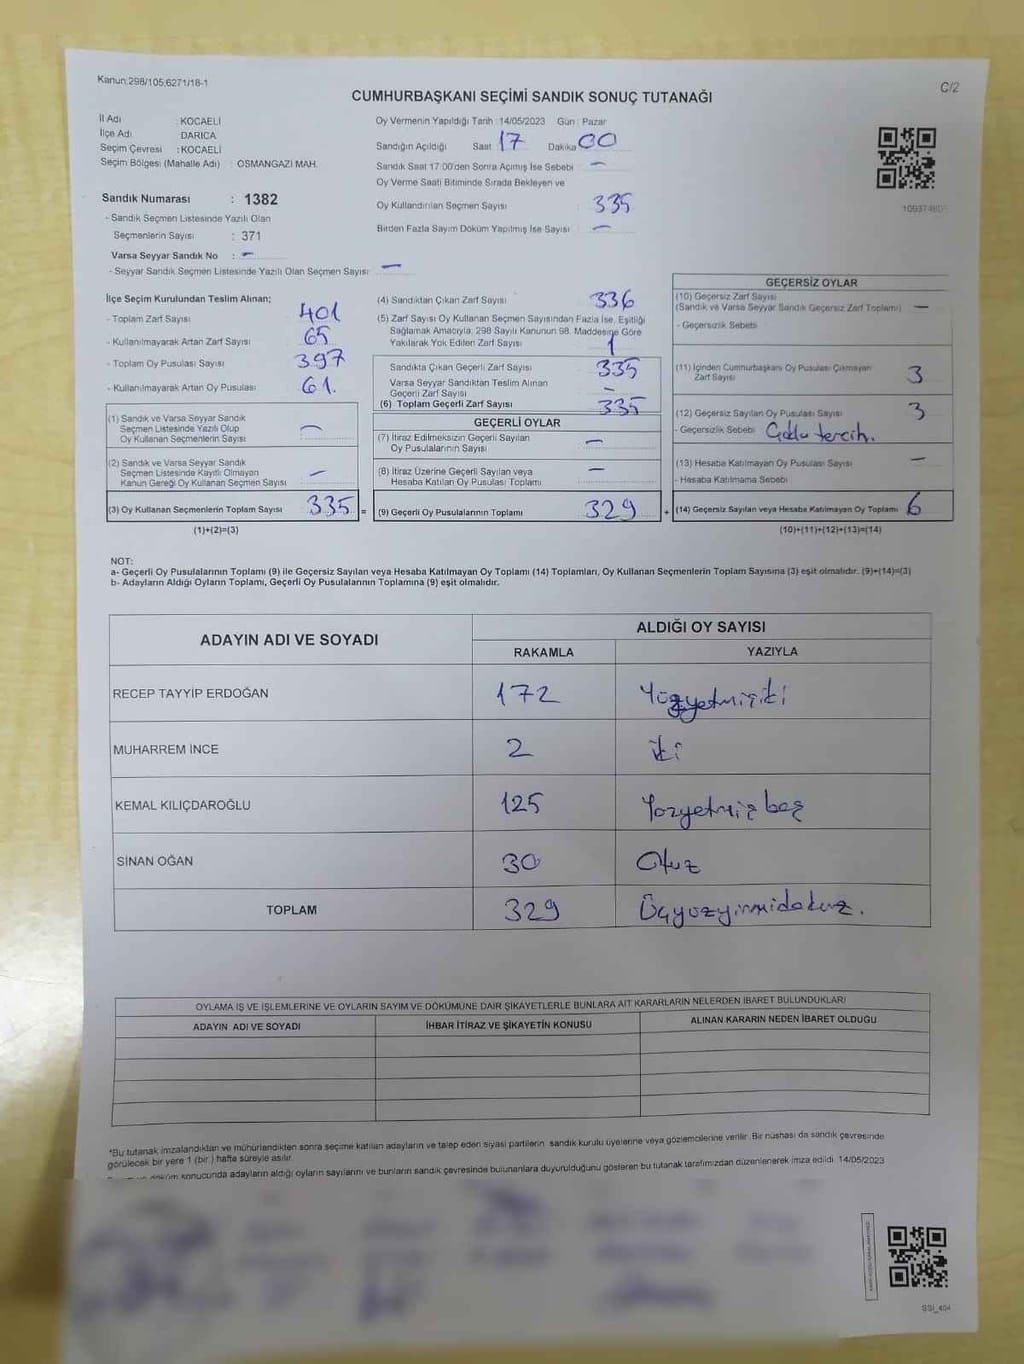 Kanun;298/105,6271/18-1
C/2
CUMHURBAŞKANI SEÇİMİ SANDIK SONUÇ TUTANAĞI
İl Adı : KOCAELİ
İlçe Adı : DARICA
Seçim Çevresi : KOCAELİ
Seçim Bölgesi (Mahalle Adı) : OSMANGAZİ MAH.
Sandık Numarası : 1382
- Sandık Seçmen Listesinde Yazılı Olan
Seçmenlerin Sayısı : 371
Varsa Seyyar Sandık No : -
- Seyyar Sandık Seçmen Listesinde Yazılı Olan Seçmen Sayısı -
Oy Vermenin Yapıldığı Tarih :14/05/2023 Gün : Pazar
Sandığın Açıldığı Saat 17 Dakika 00
Sandık Saat 17:00'den Sonra Açımış İse Sebebi -
Oy Verme Saati Bitiminde Sırada Bekleyen ve
Oy Kullandırılan Seçmen Sayısı : 335
Birden Fazla Sayım Döküm Yapılmış İse Sayısı -
İlçe Seçim Kurulundan Teslim Alınan;
- Toplam Zarf Sayısı 401
- Kullanılmayarak Artan Zarf Sayısı 65
- Toplam Oy Pusulası Sayısı 397
- Kullanılmayarak Artan Oy Pusulası 61.
(1) Sandık ve Varsa Seyyar Sandık
Seçmen Listesinde Yazılı Olup
Oy Kullanan Seçmenlerin Sayısı -
(2) Sandık ve Varsa Seyyar Sandık
Seçmen Listesinde Kayıtlı Olmayan
Kanun Gereği Oy Kullanan Seçmen Sayısı -
(3) Oy Kullanan Seçmenlerin Toplam Sayısı 335 =
(1)+(2)=(3)
(4) Sandıktan Çıkan Zarf Sayısı 336
(5) Zarf Sayısı Oy Kullanan Seçmen Sayısından Fazla İse, Eşitliği
Sağlamak Amacıyla, 298 Sayılı Kanunun 98. Maddesine Göre
Yakılarak Yok Edilen Zarf Sayısı 1
Sandıkta Çıkan Geçerli Zarf Sayısı 335
Varsa Seyyar Sandıktan Teslim Alınan
Geçerli Zarf Sayısı -
(6) Toplam Geçerli Zarf Sayısı 335
GEÇERLİ OYLAR
(7) İtiraz Edilmeksizin Geçerli Sayılan
Oy Pusulalarının Sayısı -
(8) İtiraz Üzerine Geçerli Sayılan veya
Hesaba Katılan Oy Pusulası Toplamı -
(9) Geçerli Oy Pusulalarının Toplamı 329 +
GEÇERSİZ OYLAR
(10) Geçersiz Zarf Sayısı
(Sandık ve Varsa Seyyar Sandık Geçersiz Zarf Toplamı) -
- Geçersizlik Sebebi
(11) İçinden Cumhurbaşkanı Oy Pusulası Çıkmayan
Zarf Sayısı 3
(12) Geçersiz Sayılan Oy Pusulası Sayısı 3
- Geçersizlik Sebebi Çoklu tercih.
(13) Hesaba Katılmayan Oy Pusulası Sayısı -
- Hesaba Katılmama Sebebi
(14) Geçersiz Sayılan veya Hesaba Katılmayan Oy Toplamı 6
(10)+(11)+(12)+(13)=(14)
NOT:
a- Geçerli Oy Pusulalarının Toplamı (9) ile Geçersiz Sayılan veya Hesaba Katılmayan Oy Toplamı (14) Toplamları, Oy Kullanan Seçmenlerin Toplam Sayısına (3) eşit olmalıdır. (9)+(14)=(3)
b- Adayların Aldığı Oyların Toplamı, Geçerli Oy Pusulalarının Toplamına (9) eşit olmalıdır.
ADAYIN ADI VE SOYADI
ALDIĞI OY SAYISI
RAKAMLA YAZIYLA
RECEP TAYYİP ERDOĞAN 172 Yüzyetmişiki
MUHARREM İNCE 2 iki
KEMAL KILIÇDAROĞLU 125 Yüzyetmiş beş
SİNAN OĞAN 30 Otuz
TOPLAM 329 Üçyüzyirmidokuz.
OYLAMA İŞ VE İŞLEMLERİNE VE OYLARIN SAYIM VE DÖKÜMÜNE DAİR ŞİKAYETLERLE BUNLARA AİT KARARLARIN NELERDEN İBARET BULUNDUKLARI
ADAYIN ADI VE SOYADI İHBAR İTİRAZ VE ŞİKAYETİN KONUSU ALINAN KARARIN NEDEN İBARET OLDUĞU
*Bu tutanak imzalandıktan ve mühürlendikten sonra seçime katılan adayların ve talep eden siyasi partilerin sandık kurulu üyelerine veya gözlemcilerine verilir. Bir nüshası da sandık çevresinde
görülecek bir yere 1 (bir ) hafta süreyle asılır.
döküm sonucunda adayların aldığı oyların sayılarını ve bunların sandık çevresinde bulunanlara duyurulduğunu gösteren bu tutanak tarafımızdan düzenlenerek imza edildi. 14/05/2023
SSI_404